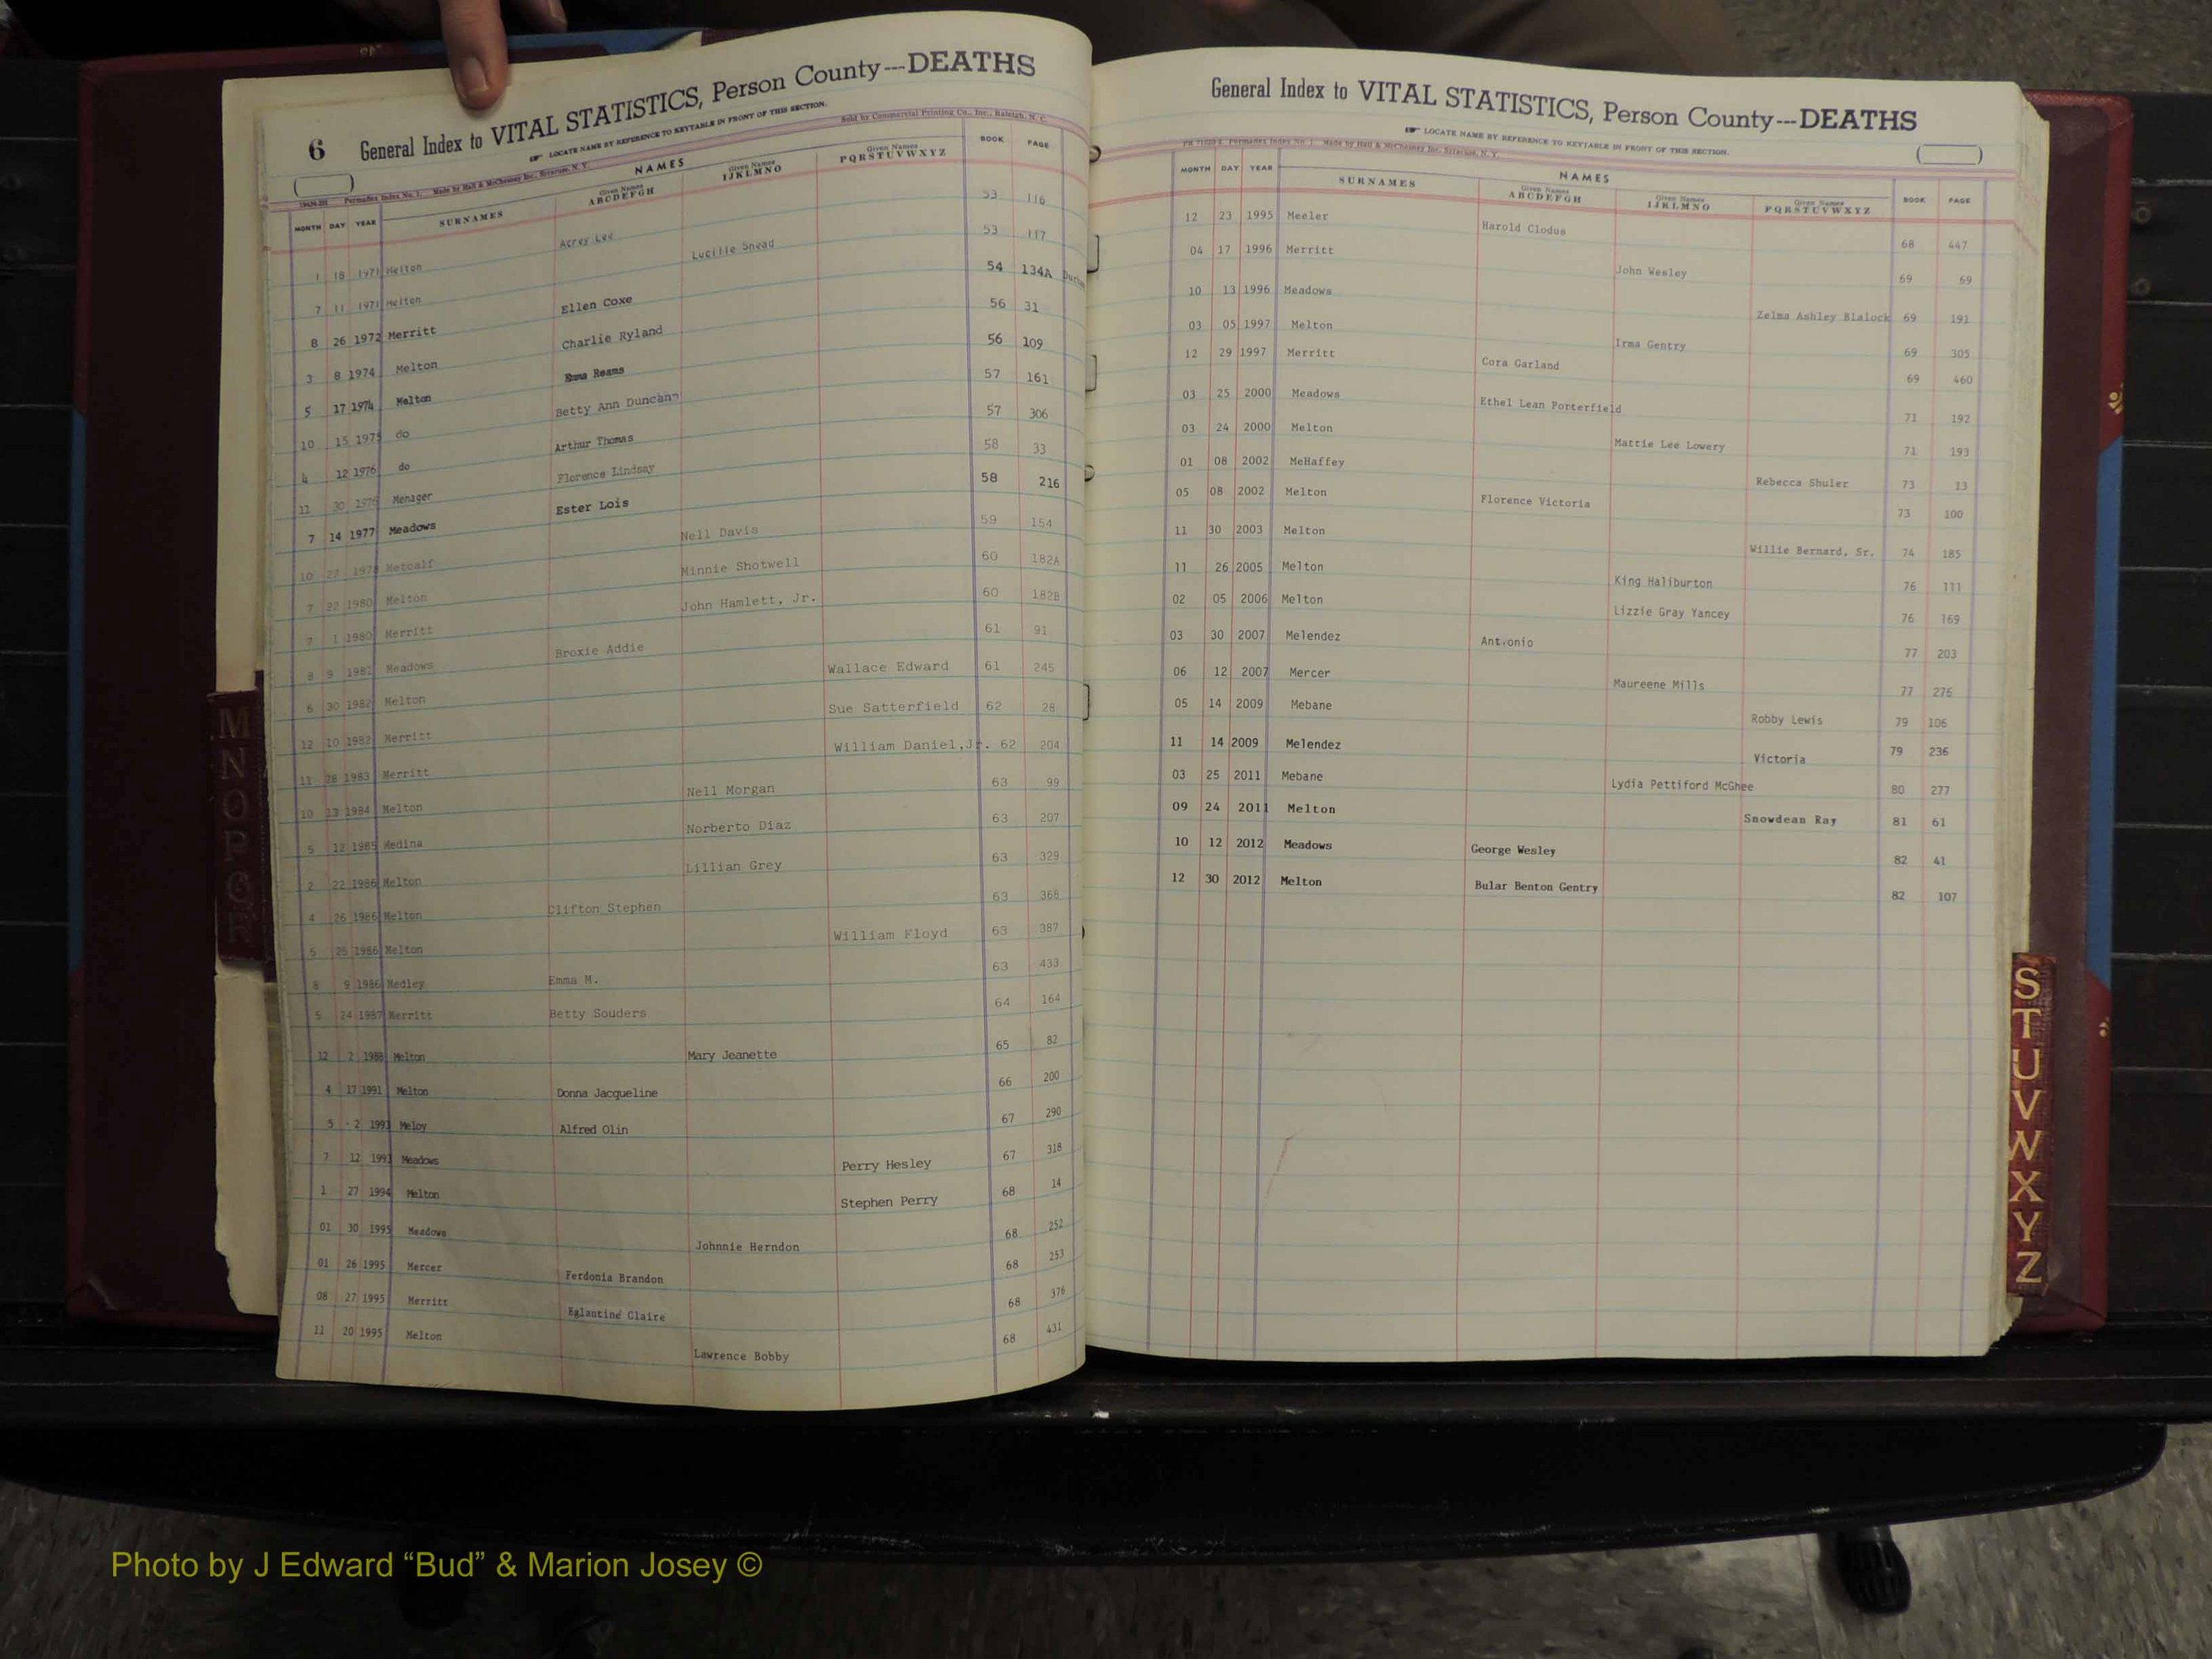 6 General Index to VITAL STATISTICS, Person County---DEATHS
LOCATE NAME BY REFERENCE TO KEYTABLE IN FRONT OF THIS SECTION.
Permaflex Index No. 1. Made by Hall & McChesney Inc., Syracuse, N. Y. Sold by Commercial Printing Co., Inc., Raleigh, N. C.
NAMES
MONTH DAY YEAR SURNAMES Given Names ABCDEFGH Given Names IJKLMNO Given Names PQRSTUVWXYZ BOOK PAGE
1 18 1971 Melton Acrey Lee 53 116
7 11 1971 Melton Lucille Snead 53 117
8 26 1972 Merritt Ellen Coxe 54 134A
3 8 1974 Melton Charlie Ryland 56 31
5 17 1974 Melton Emma Reams 56 109
10 15 1975 do Betty Ann Duncan 57 161
4 12 1976 do Arthur Thomas 57 306
30 Menager Florence Lindsay 58 33
7 14 1977 Meadows Ester Lois 58 216
10 27 1978 Metcalf Nell Davis 59 154
7 22 1980 Melton Minnie Shotwell 60 182A
7 1 1980 Merritt John Hamlett, Jr. 60 182B
8 9 1981 Meadows Broxie Addie 61 91
6 30 1982 Melton Wallace Edward 61 245
12 10 1982 Merritt Sue Satterfield 62 28
11 28 1983 Merritt William Daniel,Jr. 62 204
10 13 1984 Melton Nell Morgan 63 99
5 12 1985 Medina Norberto Diaz 63 207
2 22 1986 Melton Lillian Grey 63 329
4 26 1986 Melton Clifton Stephen 63 368
5 25 1986 Melton William Floyd 63 387
8 9 1986 Medley Emma M. 63 433
5 24 1987 Merritt Betty Souders 64 164
12 2 1988 Melton Mary Jeanette 65 82
4 17 1991 Melton Donna Jacqueline 66 200
5 2 1993 Meloy Alfred Olin 67 290
7 12 1993 Meadows Perry Hesley 67 318
1 27 1994 Melton Stephen Perry 68 14
01 30 1995 Meadows Johnnie Herndon 68 252
01 26 1995 Mercer Ferdonia Brandon 68 253
08 27 1995 Merritt Eglantine Claire 68 376
11 20 1995 Melton Lawrence Bobby 68 431
MNOPQR
General Index to VITAL STATISTICS, Person County---DEATHS
LOCATE NAME BY REFERENCE TO KEYTABLE IN FRONT OF THIS SECTION.
Permaflex Index No. 1 Made by Hall & McChesney Inc. Syracuse, N. Y.
NAMES
MONTH DAY YEAR SURNAMES Given Names ABCDEFGH Given Names IJKLMNO Given Names PQRSTUVWXYZ BOOK PAGE
12 23 1995 Meeler Harold Clodus 68 447
04 17 1996 Merritt John Wesley 69 69
10 13 1996 Meadows Zelma Ashley Blalock 69 191
03 05 1997 Melton Irma Gentry 69 305
12 29 1997 Merritt Cora Garland 69 460
03 25 2000 Meadows Ethel Lean Porterfield 71 192
03 24 2000 Melton Mattie Lee Lowery 71 193
01 08 2002 MeHaffey Rebecca Shuler 73 13
05 08 2002 Melton Florence Victoria 73 100
11 30 2003 Melton Willie Bernard, Sr. 74 185
11 26 2005 Melton King Haliburton 76 111
02 05 2006 Melton Lizzie Gray Yancey 76 169
03 30 2007 Melendez Antonio 77 203
06 12 2007 Mercer Maureene Mills 77 276
05 14 2009 Mebane Robby Lewis 79 106
11 14 2009 Melendez Victoria 79 236
03 25 2011 Mebane Lydia Pettiford McGhee 80 277
09 24 2011 Melton Snowdean Ray 81 61
10 12 2012 Meadows George Wesley 82 41
12 30 2012 Melton Bular Benton Gentry 82 107
STUVWXYZ
Photo by J Edward “Bud” & Marion Josey ©